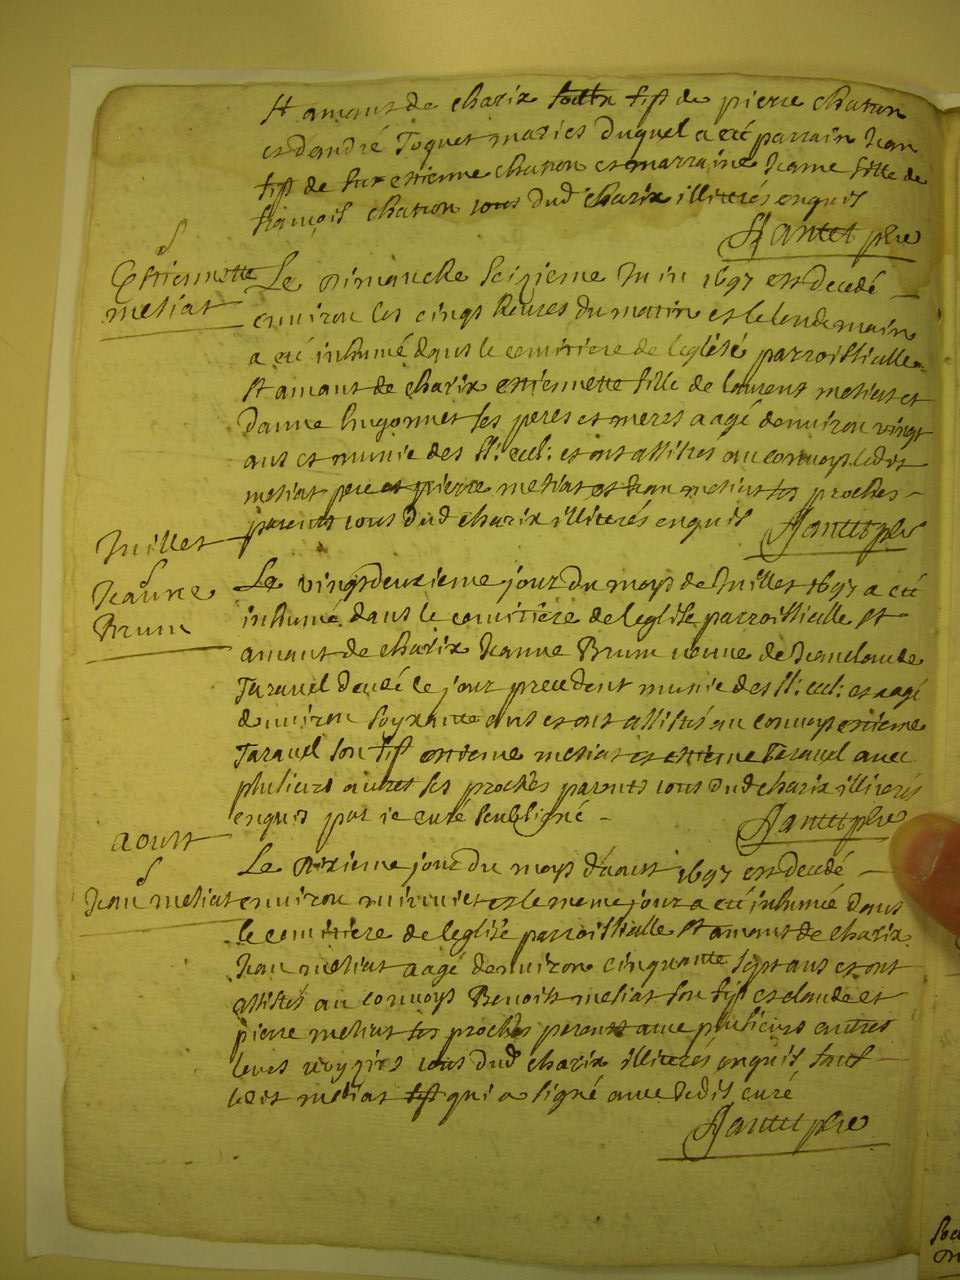 St amant de charix fils de pierre chation
et dandré Toquet mariés duquel a eté parrain Jean
fils de feu estienne chation et marraine Jeanne fille de
françois chation tous dud charix illiterés enquis
pbre
S
Estiennette
metiat
Le dimanche seizieme Juin 1697 est decedé
environ les cinqs heures du matin et le lendemain
a eté inhumé dans le cemitiere de leglise parroissialle
St amant de charix estiennette fille de laurent metiat et
danne hugonnet ses peres et meres aagé denviron vingt
ans et munie des St: eccl: et ont assistes au convoys ledit
metiat pere et pierre metiat et Jean metiat ses proches
parents tous dud charix illiterés enquis
pbre
Juillet
S
Jeanne
Brum
Le vingtdeuxieme jour du moys de Juillet 1697 a eté
inhumé dans le cemitiere de leglise parroissialle St
amant de charix Jeanne Brum veuve de Jean claude
Taravel decedé le jour precedent munie des St: eccl: et aagé
denviron soyxante ans et ont assistés au convoys estienne
Taravel son fils estienne metiat et estienne Taravel avec
plusieurs autres ses prochès parents tous dud charix illiterés
enquis par ie curé soubsigné
pbre
aoust
S
Jean metiat
Le dixieme jour du moys daoust 1697 est decedé
environ minuict et le meme jour a eté inhumé dans
le cemitiere de leglise parroissialle St amant de charix
Jean metiat aagé denviron cinquante sept ans et ont
assistés au convoys Benoist metiat son fils et claude et
pierre metiat ses prochès parents avec plusieurs autres
tous dud charix illiterés enquis sauf
ledit metiat fils qui a signé avec ledit curé
pbre